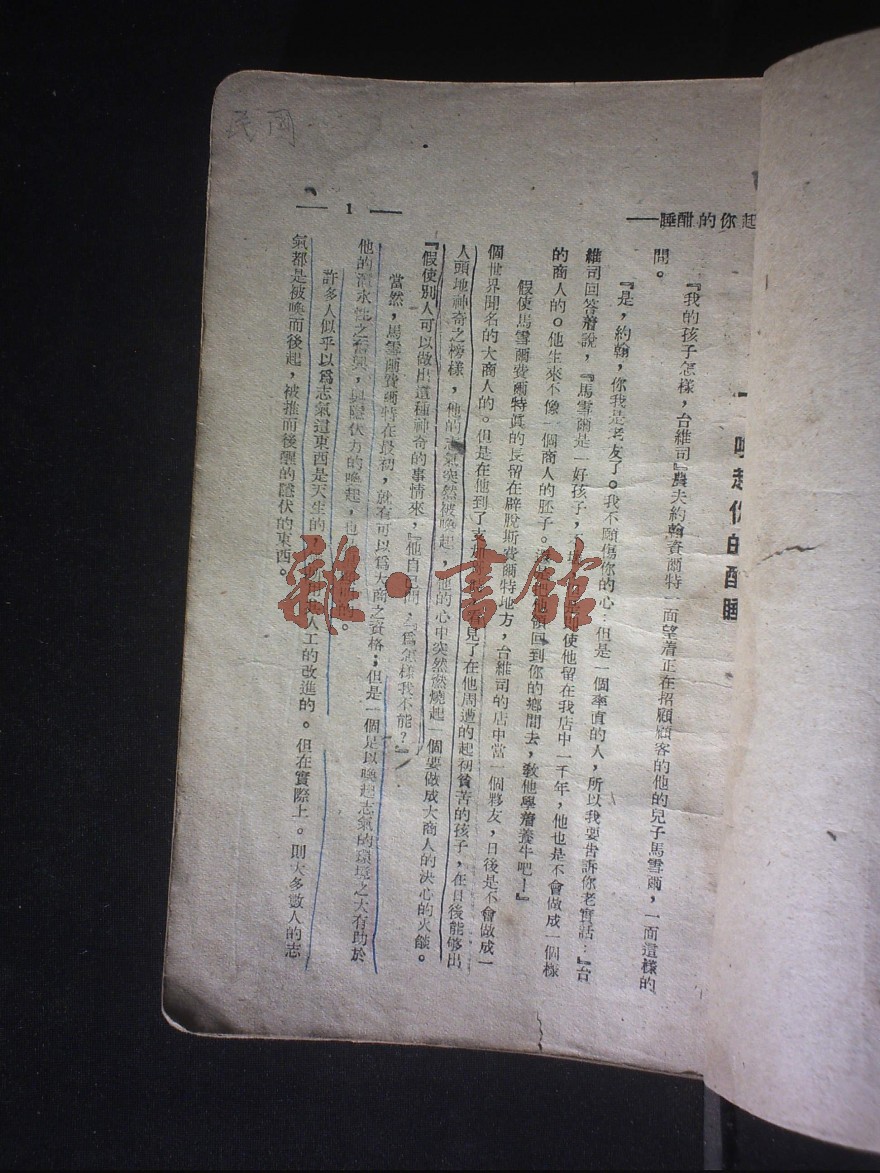 民國
睡酣的你起
— 1 —
一 喚起你的酣睡
『我的孩子怎樣,台維司』農夫約翰費爾特一面望着正在招顧顧客的他的兒子馬雪爾,一面這樣的
問。
『是,約翰,你我是老友了。我不願傷你的心:但是一個率直的人,所以我要告訴你老實話:』台
維司回答着說,『馬雪爾是一好孩子,不 使他留在我店中一千年,他也是不會做成一個樣
的商人的。他生來不像一個商人的胚子。 領回到你的鄉間去,敎他學着養牛吧!』
假使馬雪爾費爾特眞的長留在辟脫斯費爾特地方,台維司的店中當一個夥友,日後是不會做成一
個世界聞名的大商人的。但是在他到了支 看見了在他周遭的起初貧苦的孩子,在日後能够出
人頭地神奇之榜樣,他的志氣突然被喚起, 的心中突然燃燒起一個要做成大商人的決心的火燄。
『假使別人可以做出這種神奇的事情來,』他自己問,『爲怎樣我不能?』
當然,馬雪爾費爾特在最初,就有可以爲大商之資格;但是一個足以喚起志氣的環境之大有助於
他的潛水性之奮興,與隱伏力的喚起,也 的。
許多人似乎以爲志氣這東西是天生的, 人工的改進的。但在實際上。則大多數人的志
氣都是被喚而後起,被推而後醒的隱伏的東西。
雜·書館